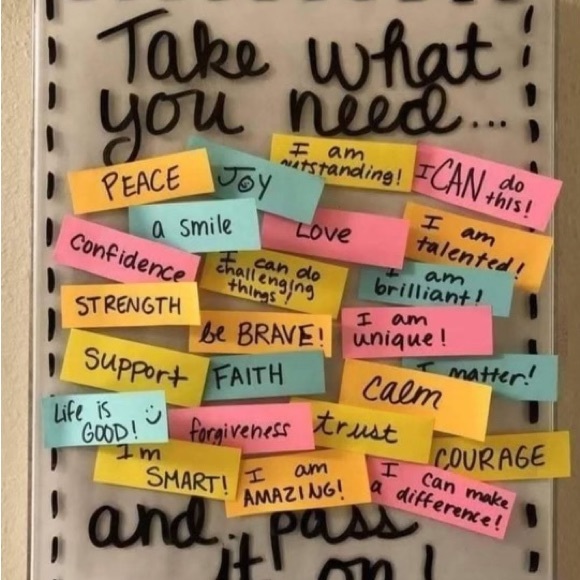 Take what
you need...
PEACE
JOY
I am
outstanding!
I CAN do
this!
a smile
Love
I am
talented!
Confidence
I can do
challenging
things!
I am
brilliant!
STRENGTH
be BRAVE!
I am
unique!
Support
FAITH
I matter!
Calm
Life is
GOOD!
forgiveness
trust
COURAGE
I'm
SMART!
I am
AMAZING!
I can make
a difference!
and pass
it on!